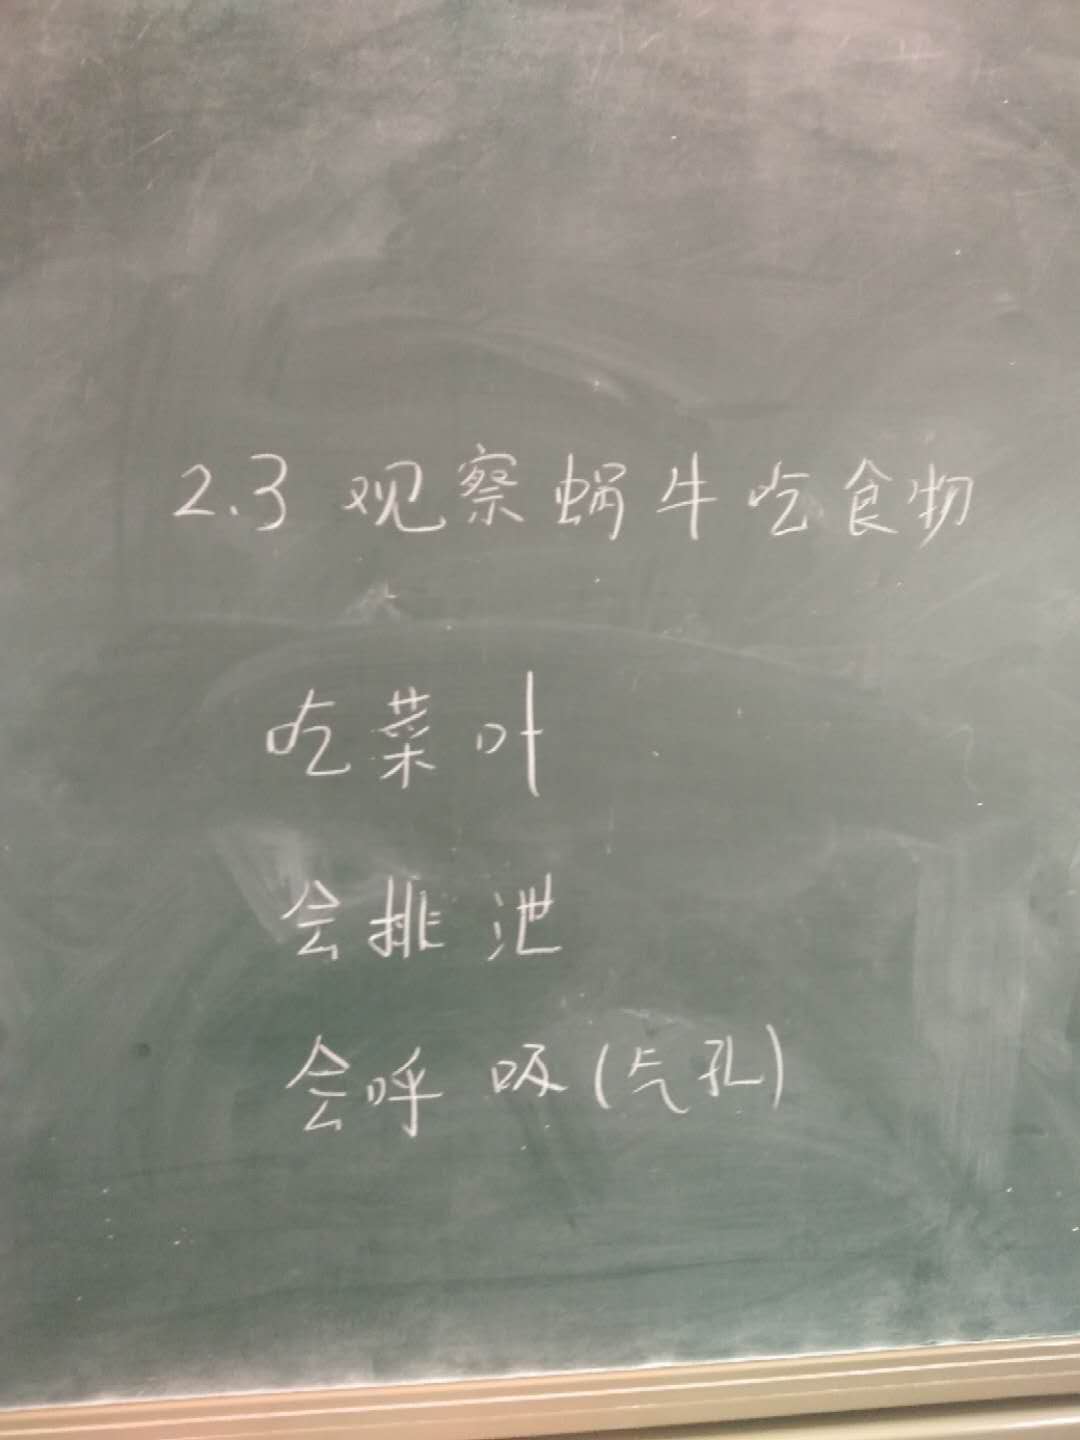 2.3 观察蜗牛吃食物
吃菜叶
会排泄
会呼吸(气孔)